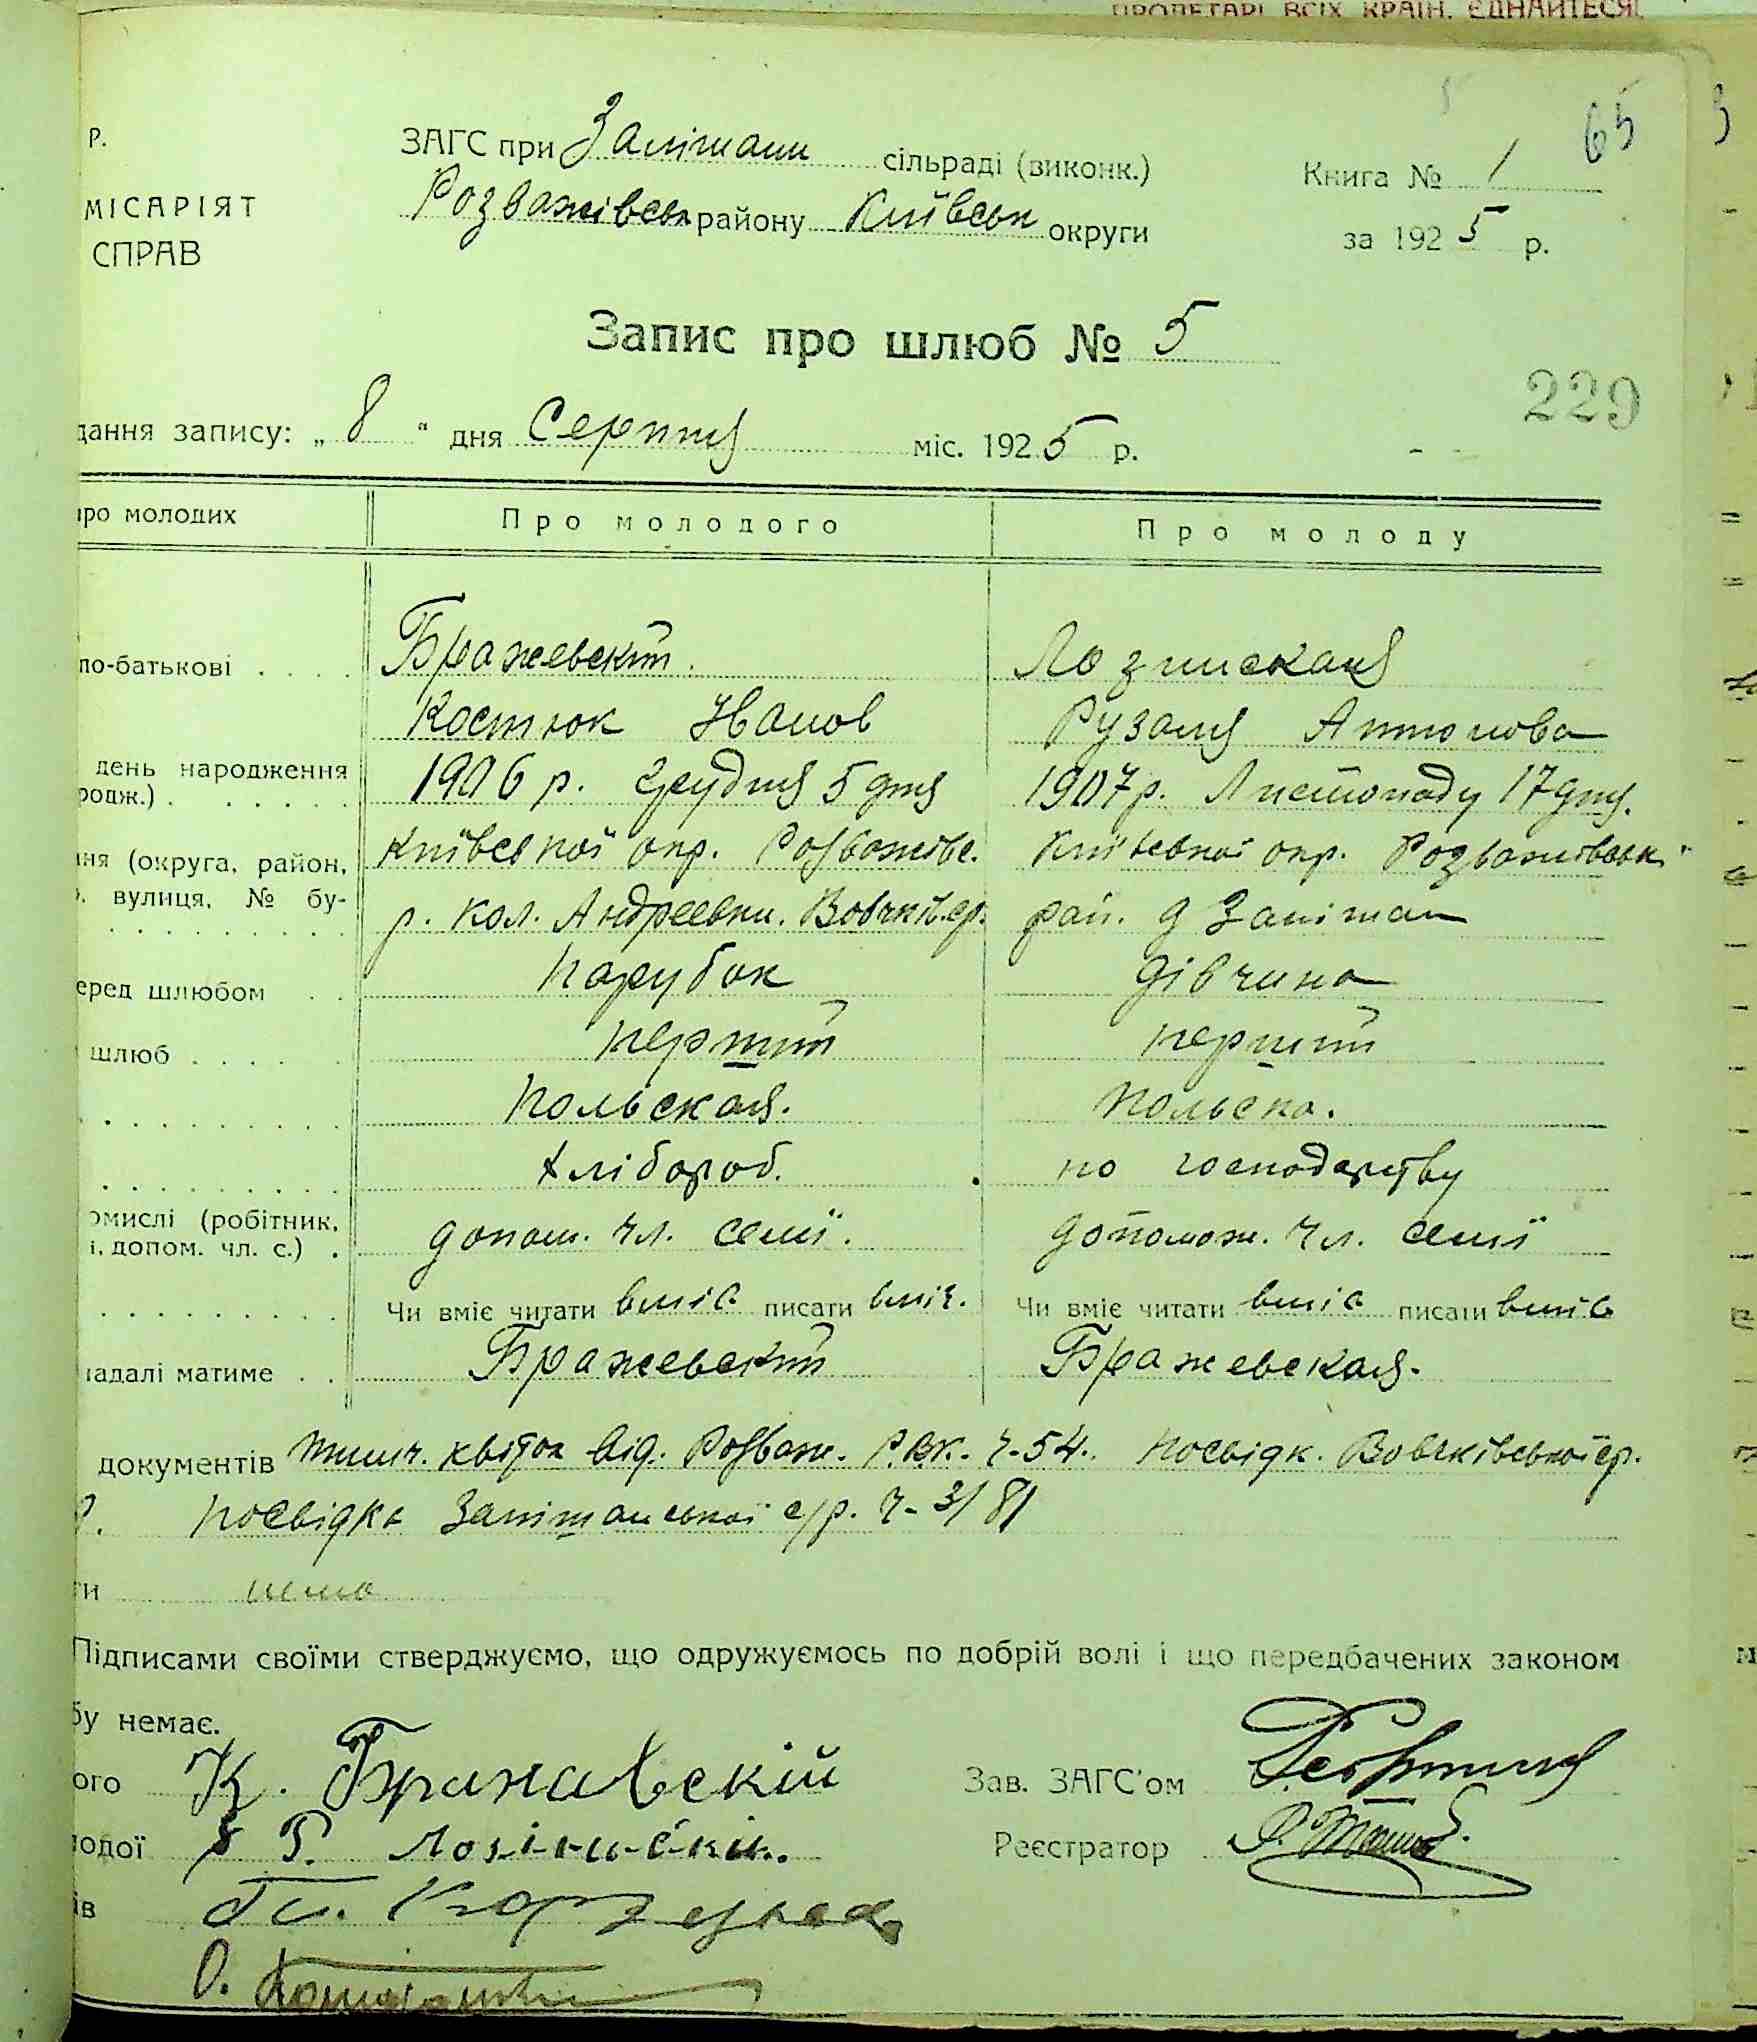 ПРОЛЕТАРІ ВСІХ КРАЇН, ЄДНАЙТЕСЯ!
65
Р.
МІСАРІЯТ
СПРАВ
ЗАГС при Залішани сільраді (виконк.)
Розважівськ району Київськ округи
Книга № 1
за 1925 р.
Запис про шлюб № 5
229
дання запису: „ 8 “ дня Серпня міс. 1925 р.
про молодих Про молодого Про молоду
по-батькові . . . . Бражевский. Лозинская
Костюк Иванов Рузаля Антонова
день народження 1906 р. Грудня 5 дня 1907 р. Листопаду 17 дня.
родж.) . . . . . .
ння (округа, район, Київської окр. Розважівс. Київської окр. Розважівськ.
вулиця, № бу- р. кол. Андреевки. Вовчків.ср. рай. д Залішан
еред шлюбом . . Парубок дівчина
шлюб . . . . перший перший
Польская. Польска.
хлібороб. по господарству
омислі (робітник, допом. чл. семї. допомож. чл. семї
і, допом. чл. с.) .
Чи вміє читати вміє писати вміє. Чи вміє читати вміє писати вміє
надалі матиме . . Бражевский Бражевская.
документів квіток від. Розваж. Р.В.К. ч-54. посвідк. Вовчківської ср.
посвідка Залішанської с/р. ч-3/81
ти нема
Підписами своїми стверджуємо, що одружуємось по добрій волі і що передбачених законом
бу немає.
ого К. Бражевскій Зав. ЗАГС'ом
лодої Р. Реєстратор
ів
О.